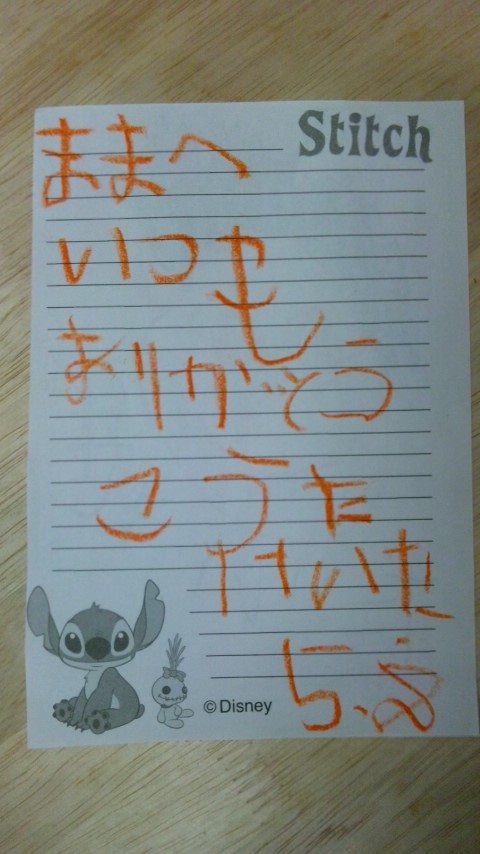 Stitch
ままへ
いつも
ありがとう
こうた
けいた
© Disney